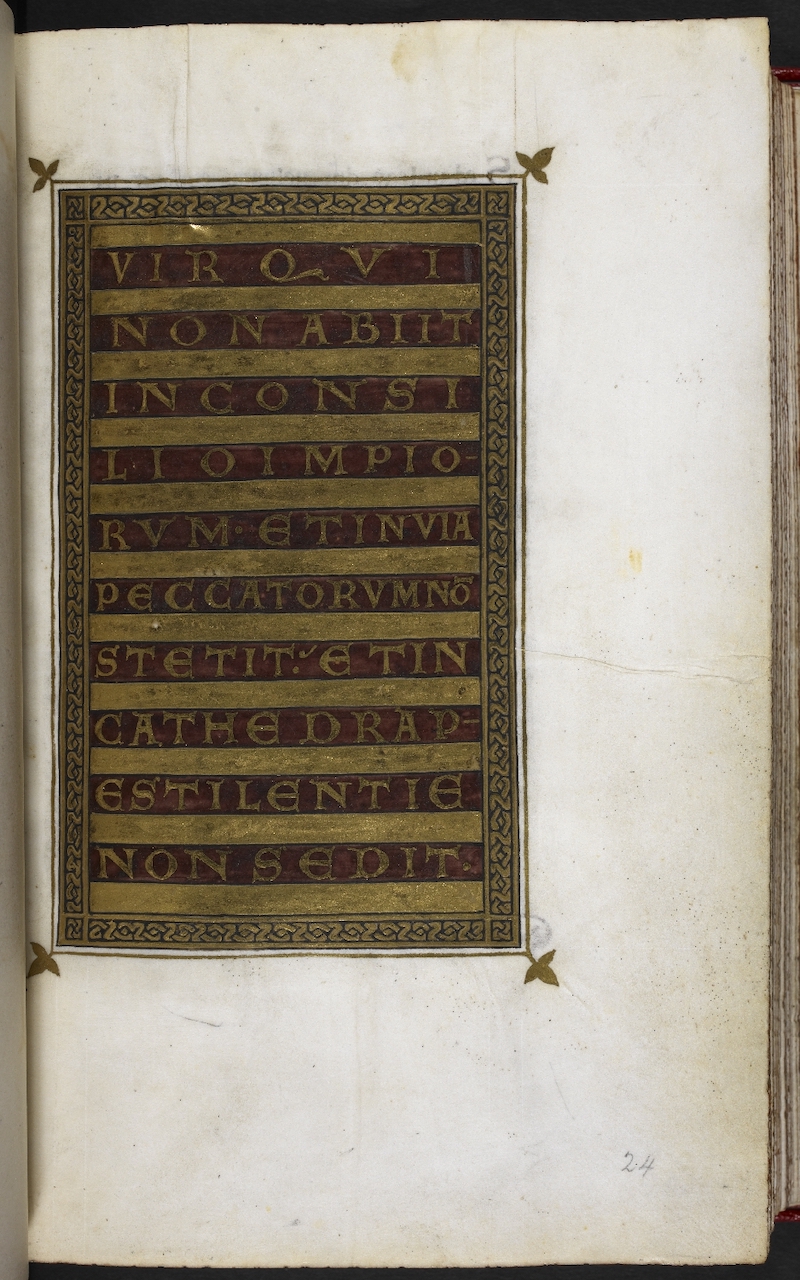 VIR QVI
NON ABIIT
IN CONSI
LIO IMPIO-
RVM· ET IN VIA
PECCATORVM NŌ
STETIT: ET IN
CATHEDRA P-
ESTILENTIE
NON SEDIT.
24